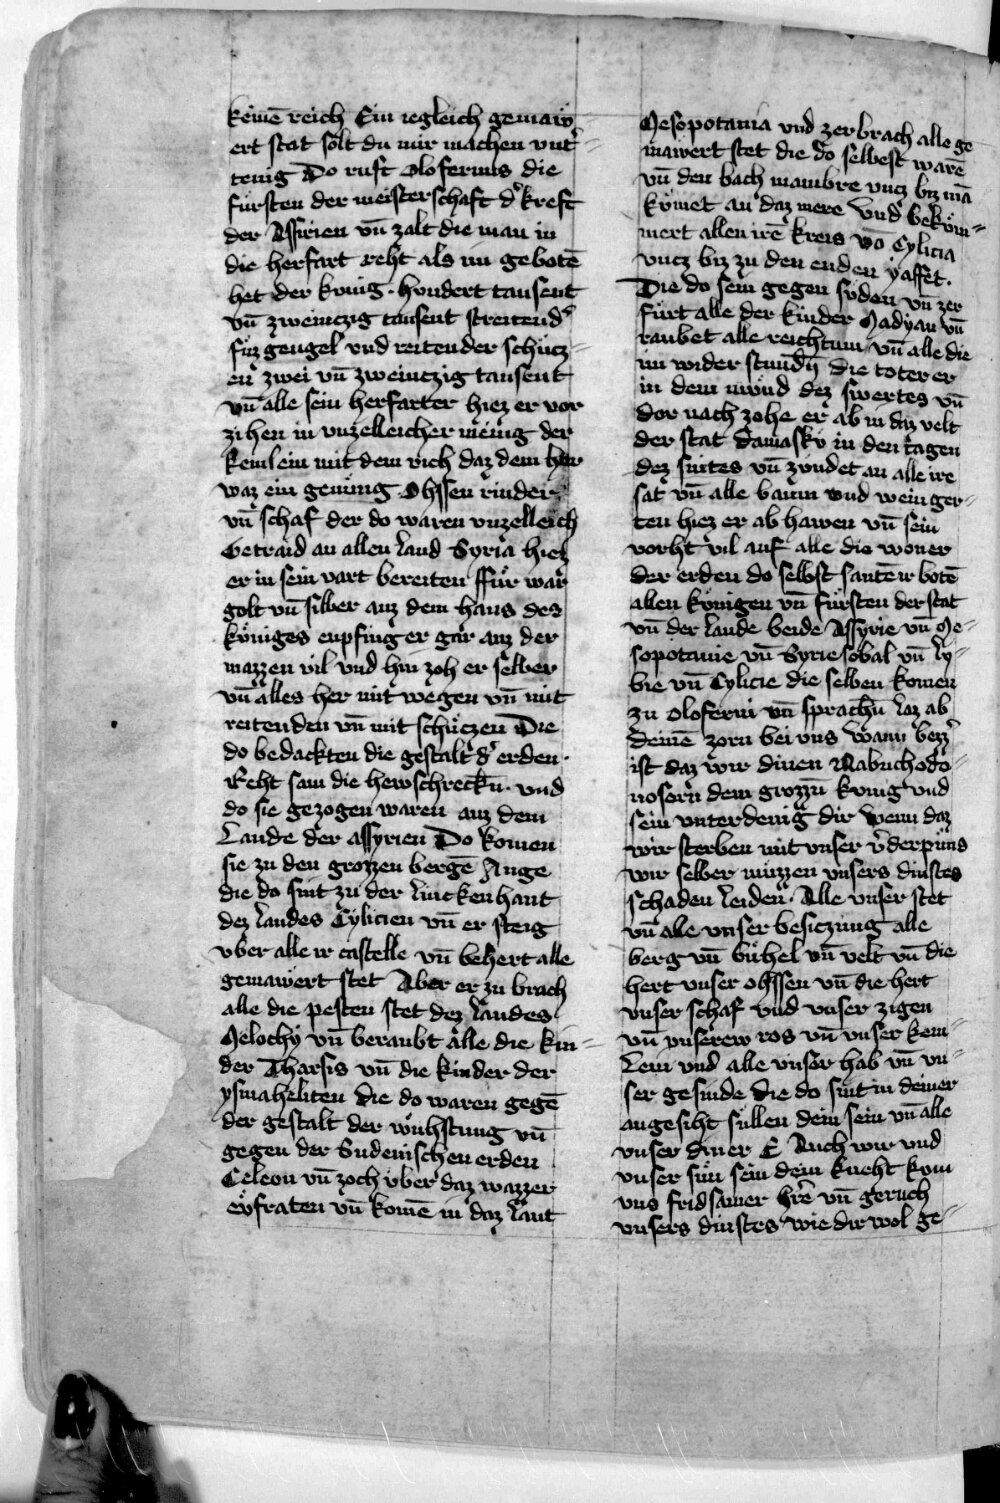 keinē reich Ein iegleich gemaẅ-
ert stat solt du mir machen vnt̉-
tenig Do ruft Olofernus die
fürsten der meisterschaft d̉ kreft
der Assirien vn̄ zalt die man in
die herfart reht als im gebotē
het der kunig · hundert tausent
vn̄ zweinczig tausent streitend̉
fuzgengel vnd reitender schücz-
en zwei vn̄ zweinczig tausent
vn̄ alle sein herfarter hiez er vor
zihen in vnzelleicher menig der
kemlein mit dem vich daz dem her
waz ein genung Ohssen rinder
vn̄ schaf der do waren vnzelleich
Getraid an allen land Syria hiez
er in sein vart bereiten für war
golt vn̄ silber auz dem haus des
küniges enpfing er gar auz der
mazzen vil vnd hin zoh er selber
vn̄ alles her mit wegen vn̄ mit
reitenden vn̄ mit schüczen Die
do bedackten die gestalt d̉ erden ·
Reht sam die hewschreckn̄ · vnd
do sie gezogen waren auz dem
Lande der assyrien Do komen
sie zu den grozzen bergē Ange
die do sint zu der lincken hant
dez landes Cylicien vn̄ er steig
vber alle ir castelle vn̄ behert alle
gemawert stet Aber er zu brach
alle die pesten stet dez landes
Melochy vn̄ beraubt alle die kin-
der Tharsis vn̄ die kinder der
ysmaheliten die do waren gegē
der gestalt der wühstung vn̄
gegen der Sudenischen erden
Celeon vn̄ zoch vber daz wazzer
eüfraten vn̄ komē in daz lant
Mesopotania vnd zerbrach alle ge
mawert stet die do selbest warē
vn̄ den bach mambre vncz biz mā
kümet an daz mere vnd bekům-
mert allen irē kreis vō Cylicia
vncz biz zu den enden yaffet ·
Die do sein gegen suden vn̄ zer
fürt alle der kinder Madyan vn̄
raubet alle reichtum vn̄ alle die
im wider stundn̄ die toter er
in dem mund dez swertes vn̄
dor nach zohe er ab in daz velt
der stat damasky in den tagen
dez snites vn̄ zundet an alle ire
sat vn̄ alle baum vnd weinger-
ten hiez er ab hawen vn̄ sein
vorht vil auf alle die woner
der erden do selbst santē ir botē
allen künigen vn̄ fürsten der stat
vn̄ der lande beide Assyrie vn̄ Me-
sopotanie vn̄ Syrie sobal vn̄ ly-
bie vn̄ Cylicie die selben komen
zu oloferni vn̄ sprachn̄ laz ab
deinē zorn bei vns wann bezz̉
ist daz wir dinen Nabuchodo-
nosorn dem grozzn̄ kunig vnd
sein vnterdenig dir wenn daz
wir sterben mit vnser v̉derpnüs
wir selber müzzen vnsers dinstes
schaden leiden · Alle vnser stet
vn̄ alle vnser besiczung alle
berg vn̄ bühel vn̄ velt vn̄ die
hert vnser ohssen vn̄ die hert
vnser schaf vnd vnser zigen
vn̄ vnserew ros vn̄ vnser kem-
lein vnd alle vnser hab vn̄ vn-
ser gesinde die do sint in deiner
angesiht sullen dein sein vn̄ alle
vnser diner E Auch wir vnd
vnser sün sein dein kneht kom
vns fridsamer hr̄e vn̄ geruch
vnsers dinstes wie dir wol ge-